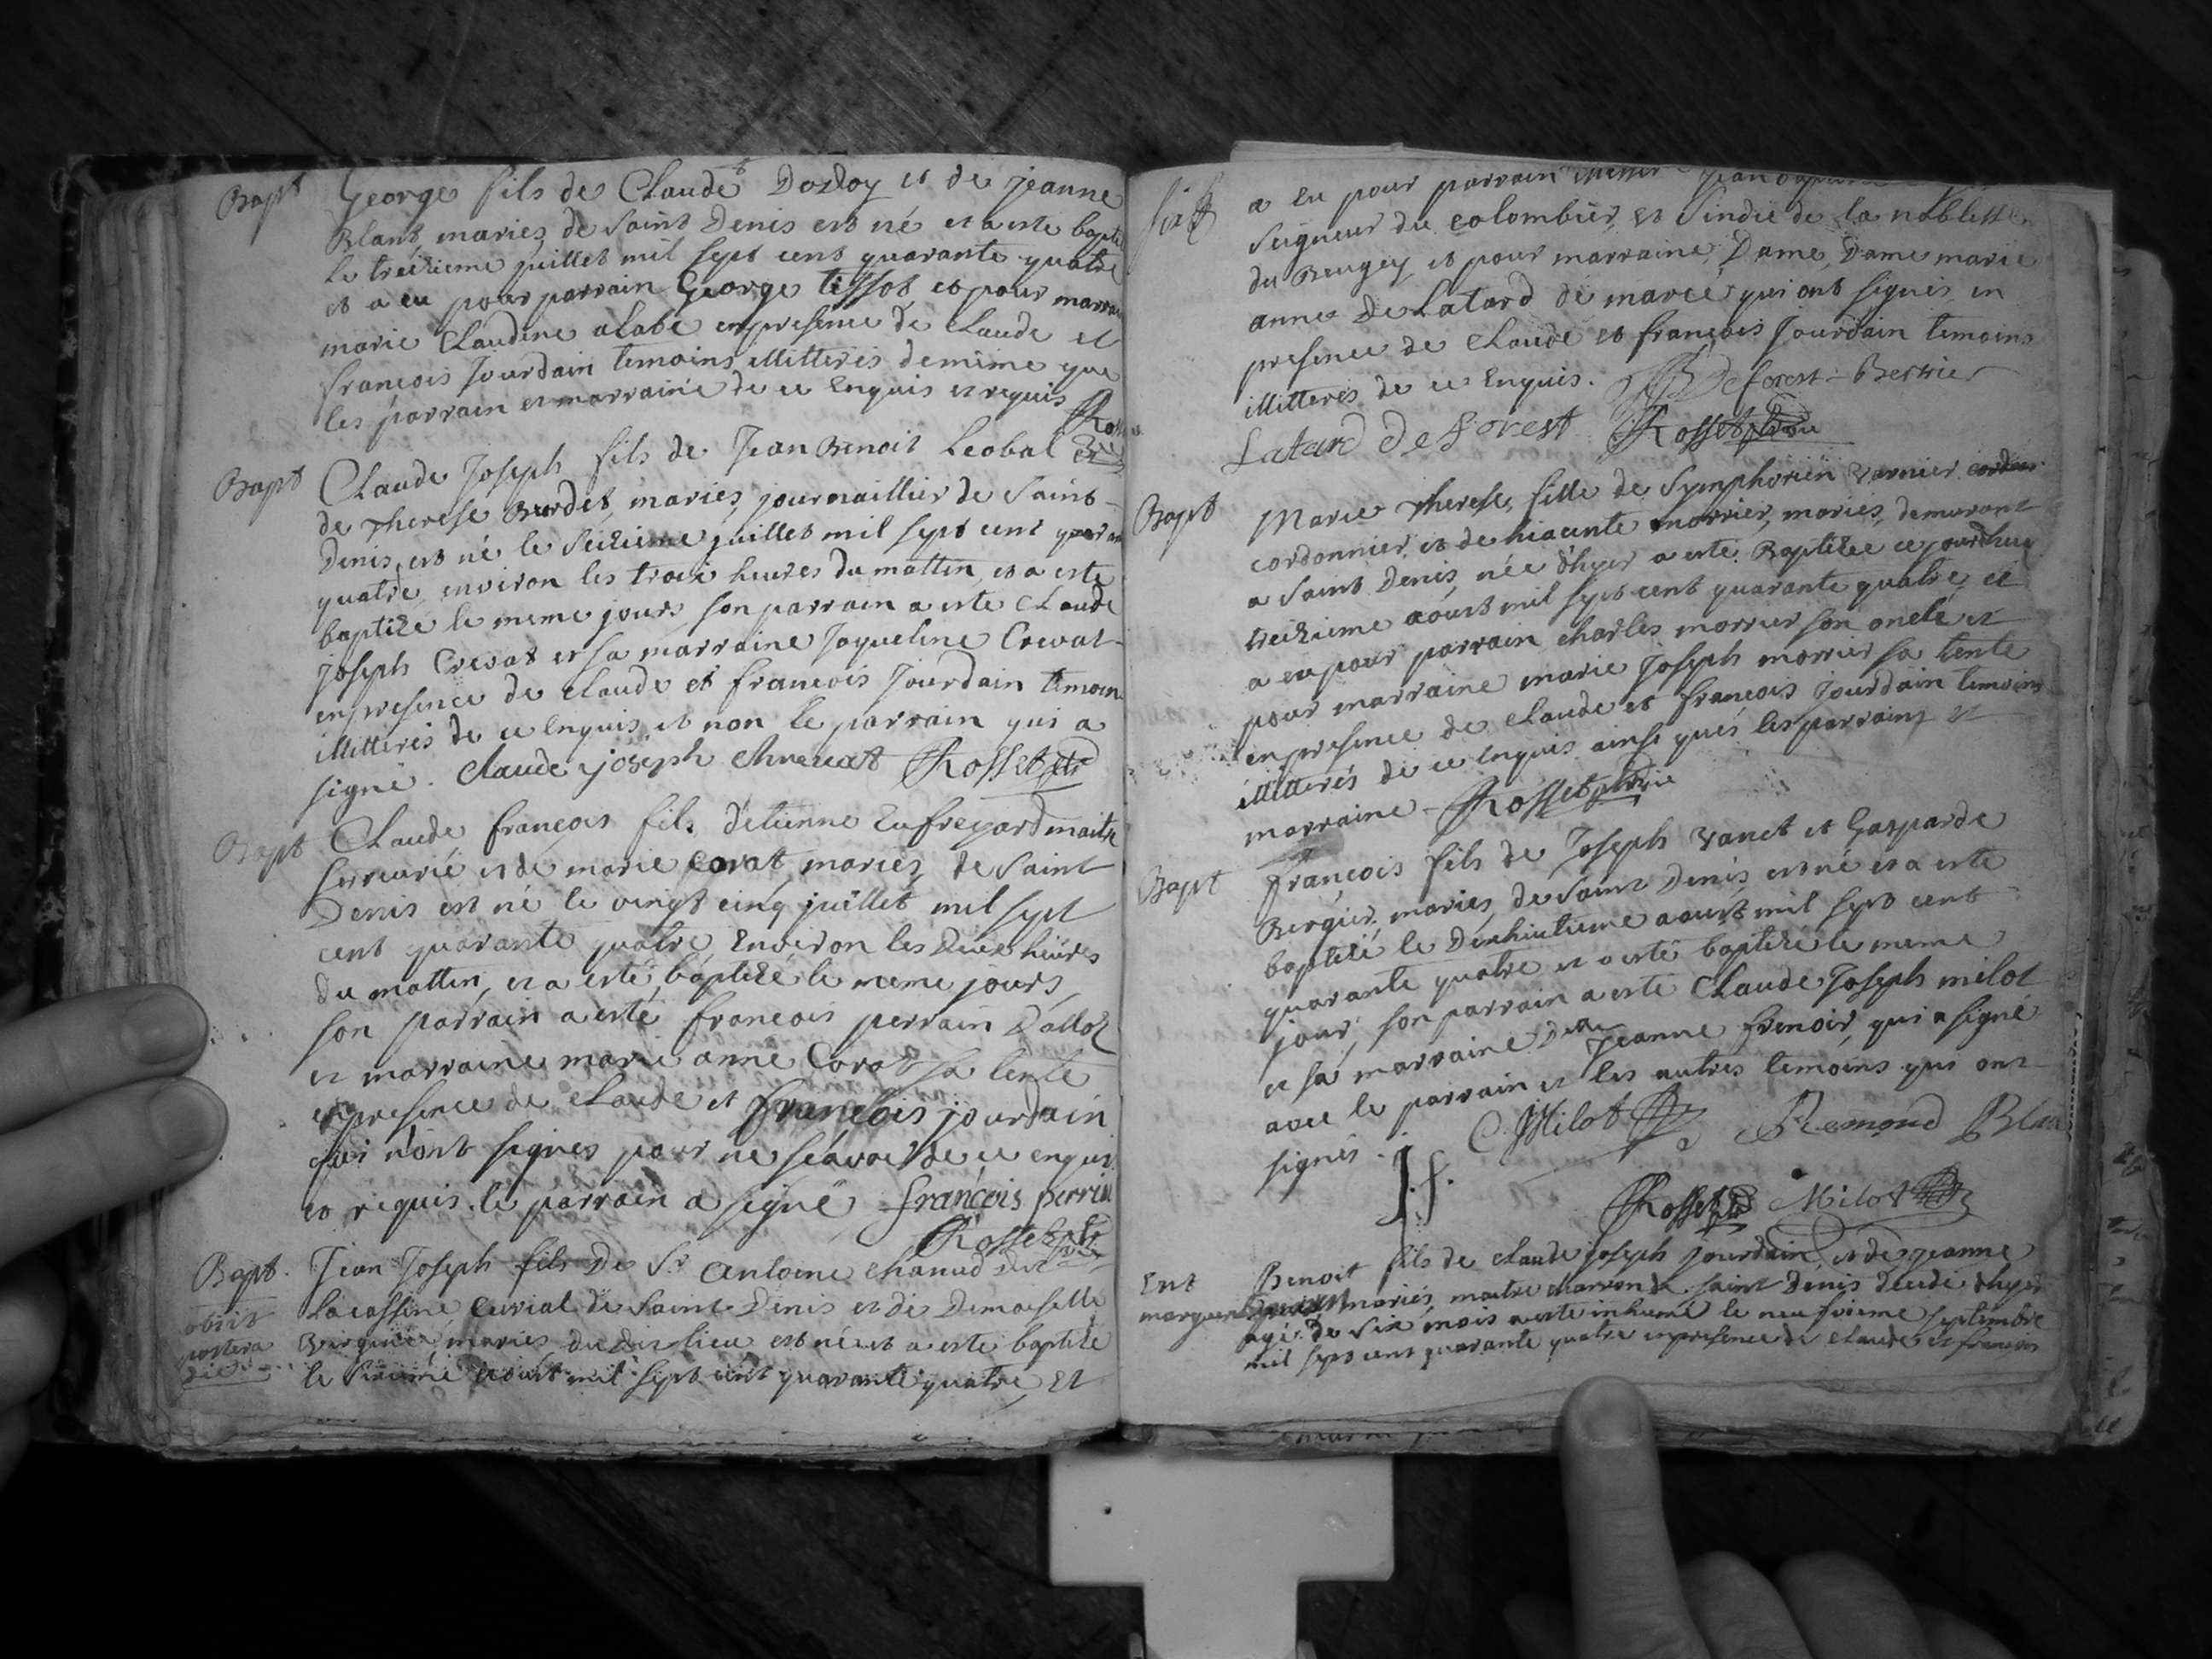 Bapt George fils de Claude Dordoy et de jeanne
Blanc, mariés, de Saint Denis est né et a esté bapti
le treizieme juillet mil sept cent quarante quatre
et a eu pour parrain George tissot et pour marrai
marie Claudine alabe en presence de Claude et
francois Jourdain temoins illitteres demême que
les parrain et marraine de ce Enquis et requis
Bapt Claude Joseph fils de Jean Benoit Leobal et
de Therese Burdet, mariés, journaillier de Saint
Denis, est né le Seizieme juillet mil sept cent quaran
quatre, environ les trois heures du mattin et a esté
baptizé le meme jours son parrain a esté Claude
joseph Crevat et sa marraine Jaqueline Crevat
en presence de Claude et francois Jourdain temoin
illitteres de ce Enquis et non le parrain qui a
signé. Claude joseph Chrevat Rosset ptre
Bapt Claude françois fils d'etienne Enfregard maitre
serrurié et de marie Corat, mariés, de Saint
Denis est né le vingt cinq juillet mil sept
cent quarante quatre Environ les Deux heures
du mattin, et a esté baptizé le meme jours,
son parrain a esté francois perrain Dallot
et marraine marie anne Corat sa tente
en presence de Claude et francois jourdain
qui n'ont signes pour ne scavoir de ce enquis
et requis. le parrain a signé françois perrin
Rosset ptre
Bapt. Jean Joseph fils De Sr antoine chanud dit
obiit lacassine curial de Saint Denis et de Demoiselle
postera mariés du dit lieu est né et a esté baptizé
die le Sixieme aoust mil sept cent quarante quatre, et
a eu pour parrain Jean
Seigneur du colombier, et Sindic de la noblesse
du Beugey et pour marraine, Dame, Dame marie
anne De Latard de marcé qui ont signés, en
presence de Claude et françois Jourdain temoins
illitteres de ce Enquis. JB Deforest-Berrier
Latard De forest Rosset
Bapt Marie Therese, fille de Symphorien Varnier
cordonnier et de hiacinte morrier, mariés, demeurant
a Saint Denis, née d'hyer a esté Baptizée ce jourdhuy
treizieme aoust mil sept cent quarante quatre, et
a eu pour parrain charles morrier son oncle et
pour marraine marie Joseph morrier sa tente
en presence de Claude et françois Jourdain temoins
illitterés de ce Enquis ainsi que les parrains et
marraine - Rosset
Bapt françois fils de Joseph Vanet et Gasparde
Bergier, mariés, de Saint Denis est né et a esté
baptizé le Dixhuitieme aoust mil sept cent
quarante quatre et a esté baptizé le meme
jour, son parrain a esté Claude Joseph milot
et sa marraine Dlle Jeanne frenoir, qui a signé
avec le parrain et les autres temoins qui ont
signés. J.f. C. Milot Remond Blan
Rosset Milot
Ent Benoit fils de Claude joseph jourdain, et de Jeanne
mariés, maitre charron de saint Denis decedé d'hyer
agé de Six mois a esté inhumé le neufvieme septembre
mil sept cent quarante quatre en presence de Claude et francois